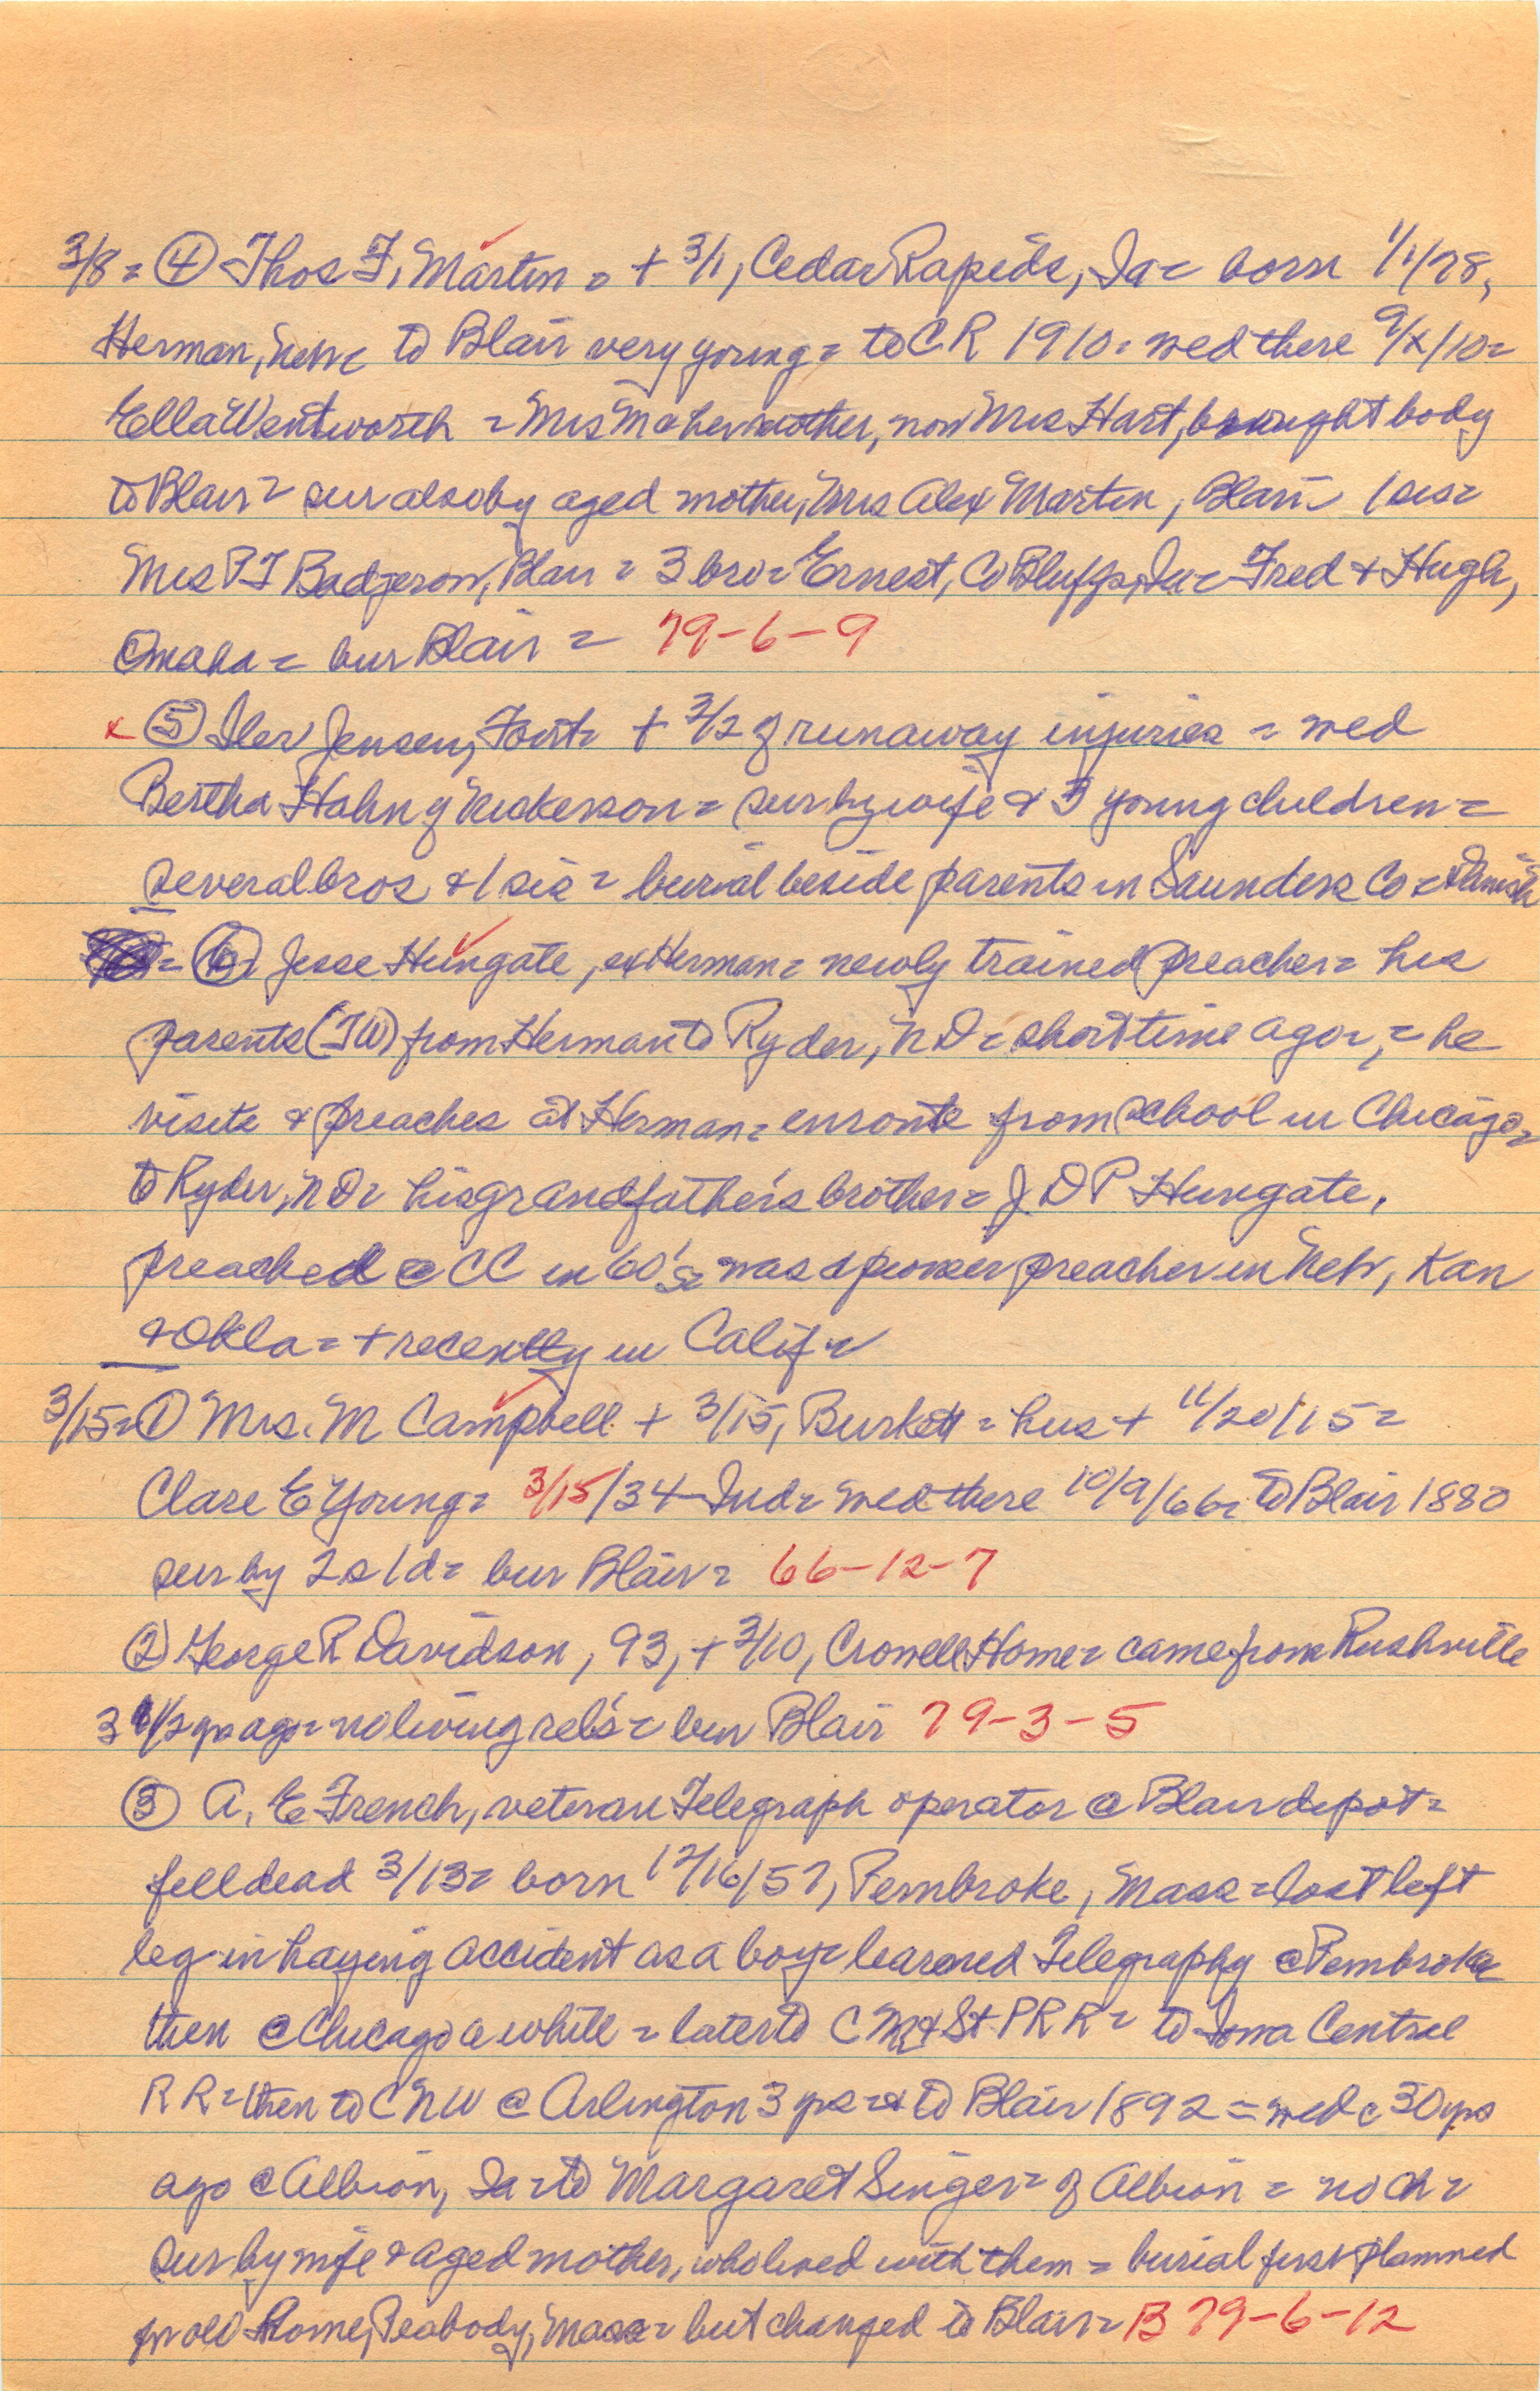 3/8 = ④ Thos F. Martin = + 3/1, Cedar Rapids, Ia = born 1/1/78,
Herman, Nebr = to Blair very young = to CR 1910 = wed there 9/x/10 =
Ella Wentworth = Mrs M & her mother, now Mrs Hart, brought body
to Blair = sur also by aged mother, Mrs Alex Martin, Blair 1 sis =
Mrs PT Badgerow, Blair = 3 bro = Ernest, Co Bluffs, Ia = Fred & Hugh,
Omaha = bur Blair = 79-6-9
x ⑤ Iler Jensen, Font = + 3/2 of runaway injuries = wed
Bertha Hahn of Nickerson = sur by wife & 3 young children =
several bros & 1 sis = burial beside parents in Saunders Co = Danish
= ⑥ = Jesse Hungate, ex Herman = newly trained preacher = his
parents (TW) from Herman to Ryder, ND = short time ago = he
visits & preaches at Herman = enroute from school in Chicago =
to Ryder, ND = his grandfather's brother = J D P Hungate,
preached @ CC in 60's = was a pioneer preacher in Nebr, Kan
& Okla = + recently in Calif =
3/15 = ① Mrs. M Campbell + 3/15, Burkett = hus + 11/20/15 =
Clare E Young = 3/15/34 Ind = wed there 10/9/66 = to Blair 1880
sur by 2s 1d = bur Blair = 66-12-7
② George R Davidson, 93, + 3/10, Crowell Home = came from Rushville
3 1/2 yrs ago = no living rels = bur Blair 79-3-5
③ A. E French, veteran Telegraph operator @ Blair depot =
fell dead 3/13 = born 12/16/57, Pembroke, Mass = lost left
leg in haying accident as a boy = learned Telegraphy @ Pembroke
then @ Chicago a while = later to C M & St P R R = to Iowa Central
R R = then to CNW @ Arlington 3 yrs = & to Blair 1892 = wed c 30 yrs
ago @ Albion, Ia = to Margaret Singer = of Albion = no ch =
sur by wife & aged mother, who lived with them = burial first planned
for old Home, Peabody, Mass = but changed to Blair = B 79-6-12